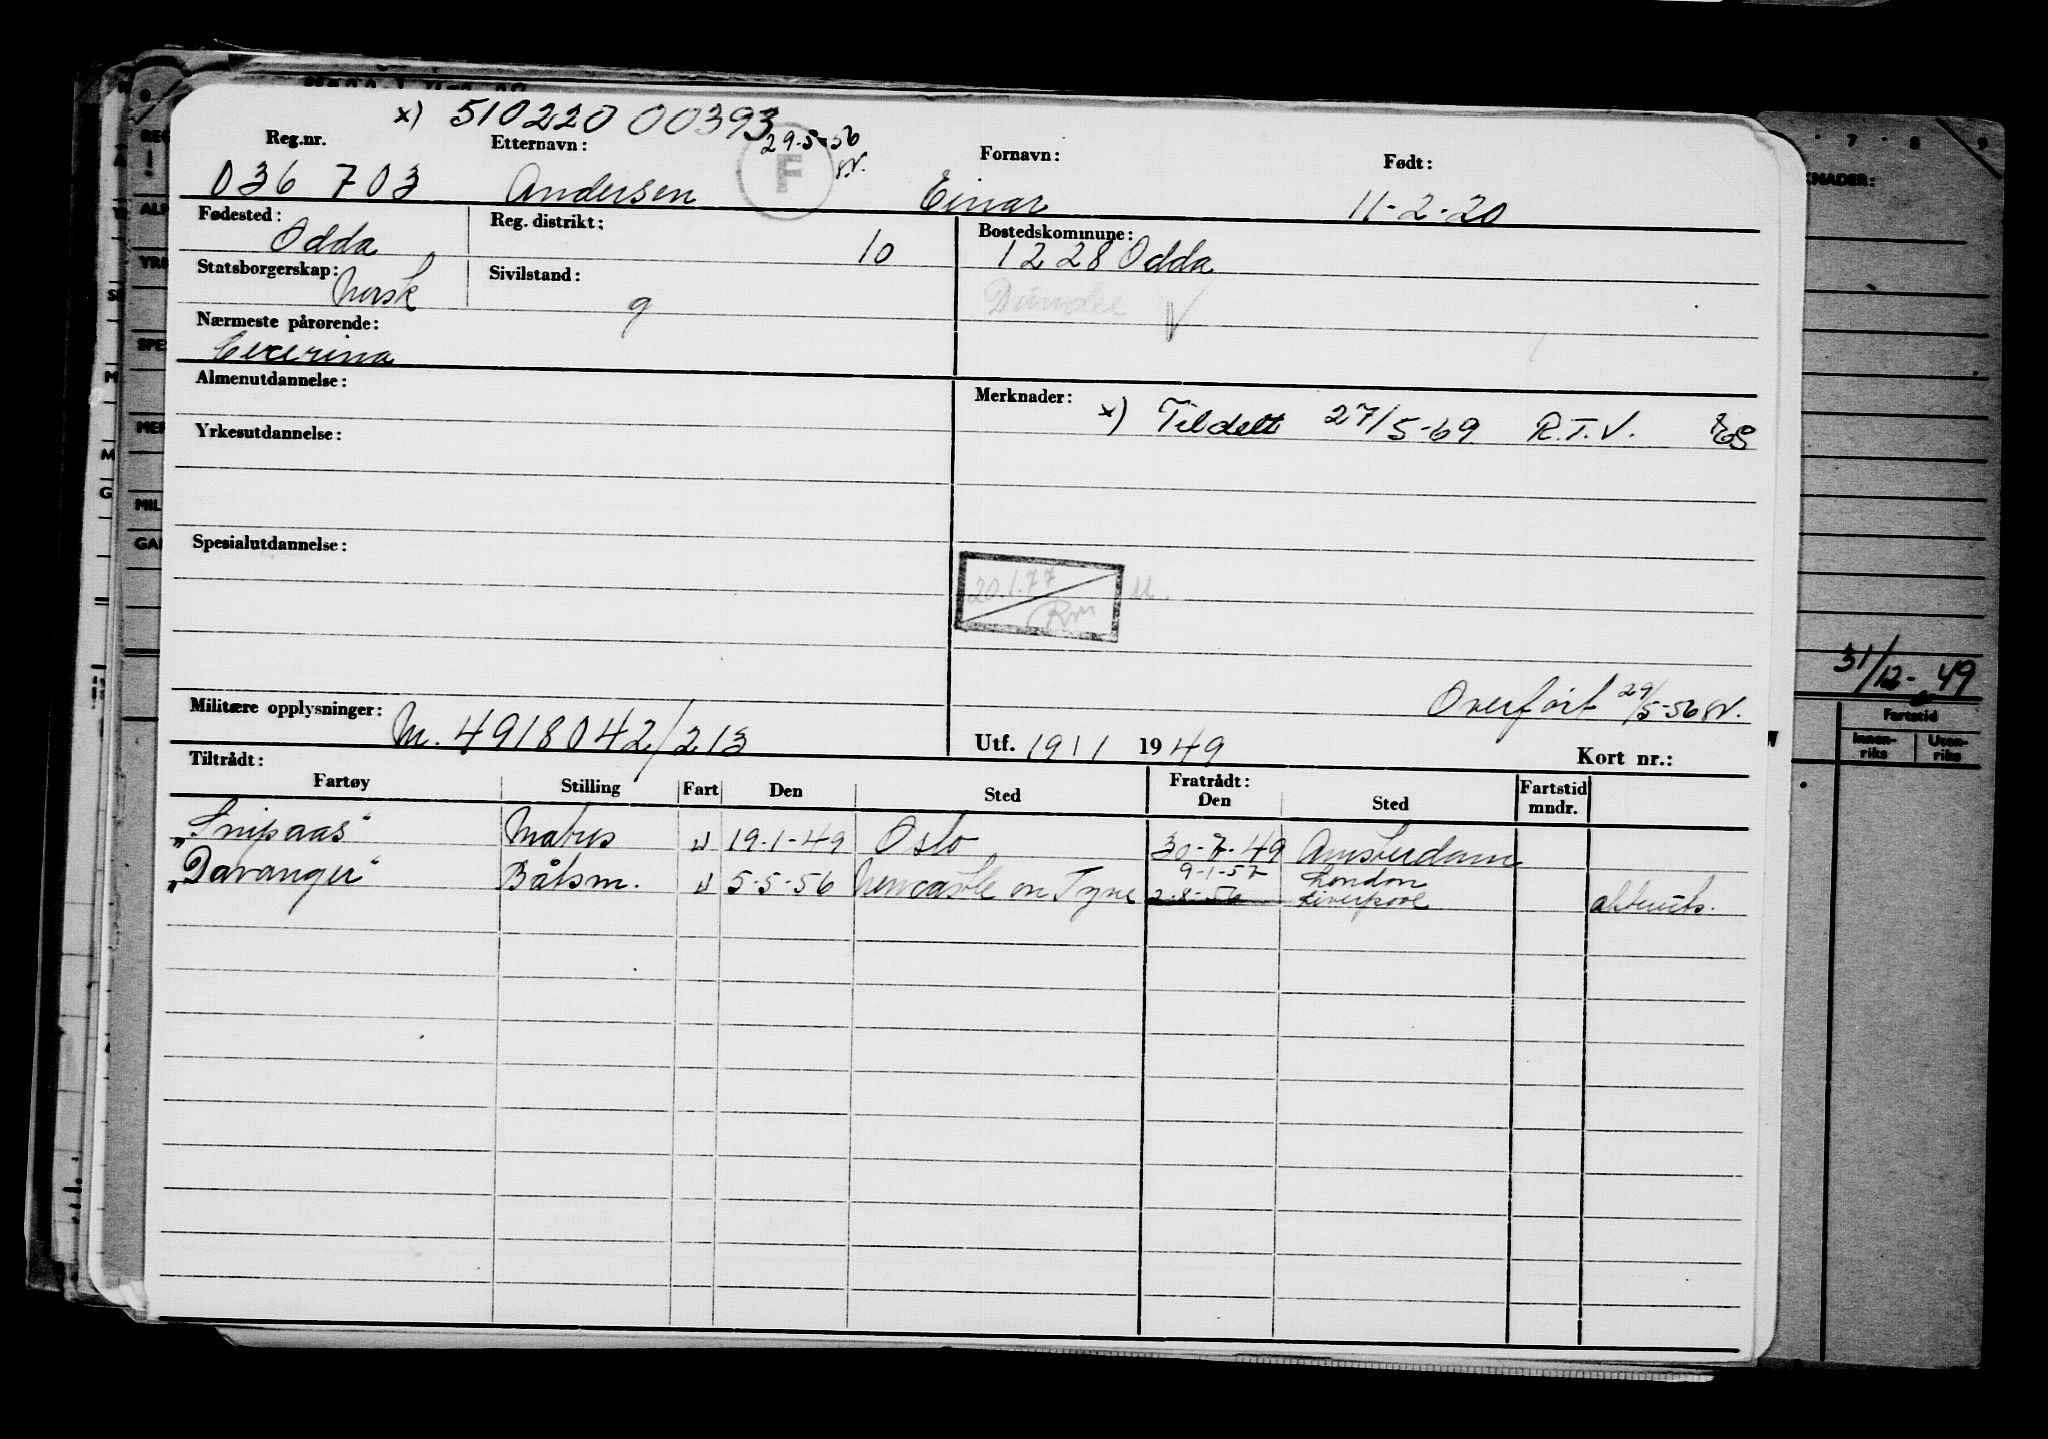 x) 510220 00393
29-5-56
Reg.nr. Etternavn: Fornavn: Født:
036 703 Andersen F Einar 11-2-20
Fødested: Odda Reg. distrikt: 10 Bostedskommune: 1228 Odda
Statsborgerskap: Norsk Sivilstand: g Dundee V
Nærmeste pårørende:
Almenutdannelse: Merknader: x) Tildelt 27/5-69 R.T.V.
Yrkesutdannelse:
Spesialutdannelse:
20.1.77
Overført 29/5-56
Militære opplysninger: M. 4918042/213 Utf. 19/1 1949 Kort nr.:
Tiltrådt: Fratrådt:
Fartøy Stilling Fart Den Sted Den Sted Fartstid mndr.
"Snipaas" Matros U 19-1-49 Oslo 30-7-49 Amsterdam
"Davanger" Båtsm. U 5-5-56 Newcastle on Tyne 9-1-57 London
2-8-56 Liverpool
KNADER:
31/12-49
Fartstid
Innen-riks Uten-riks